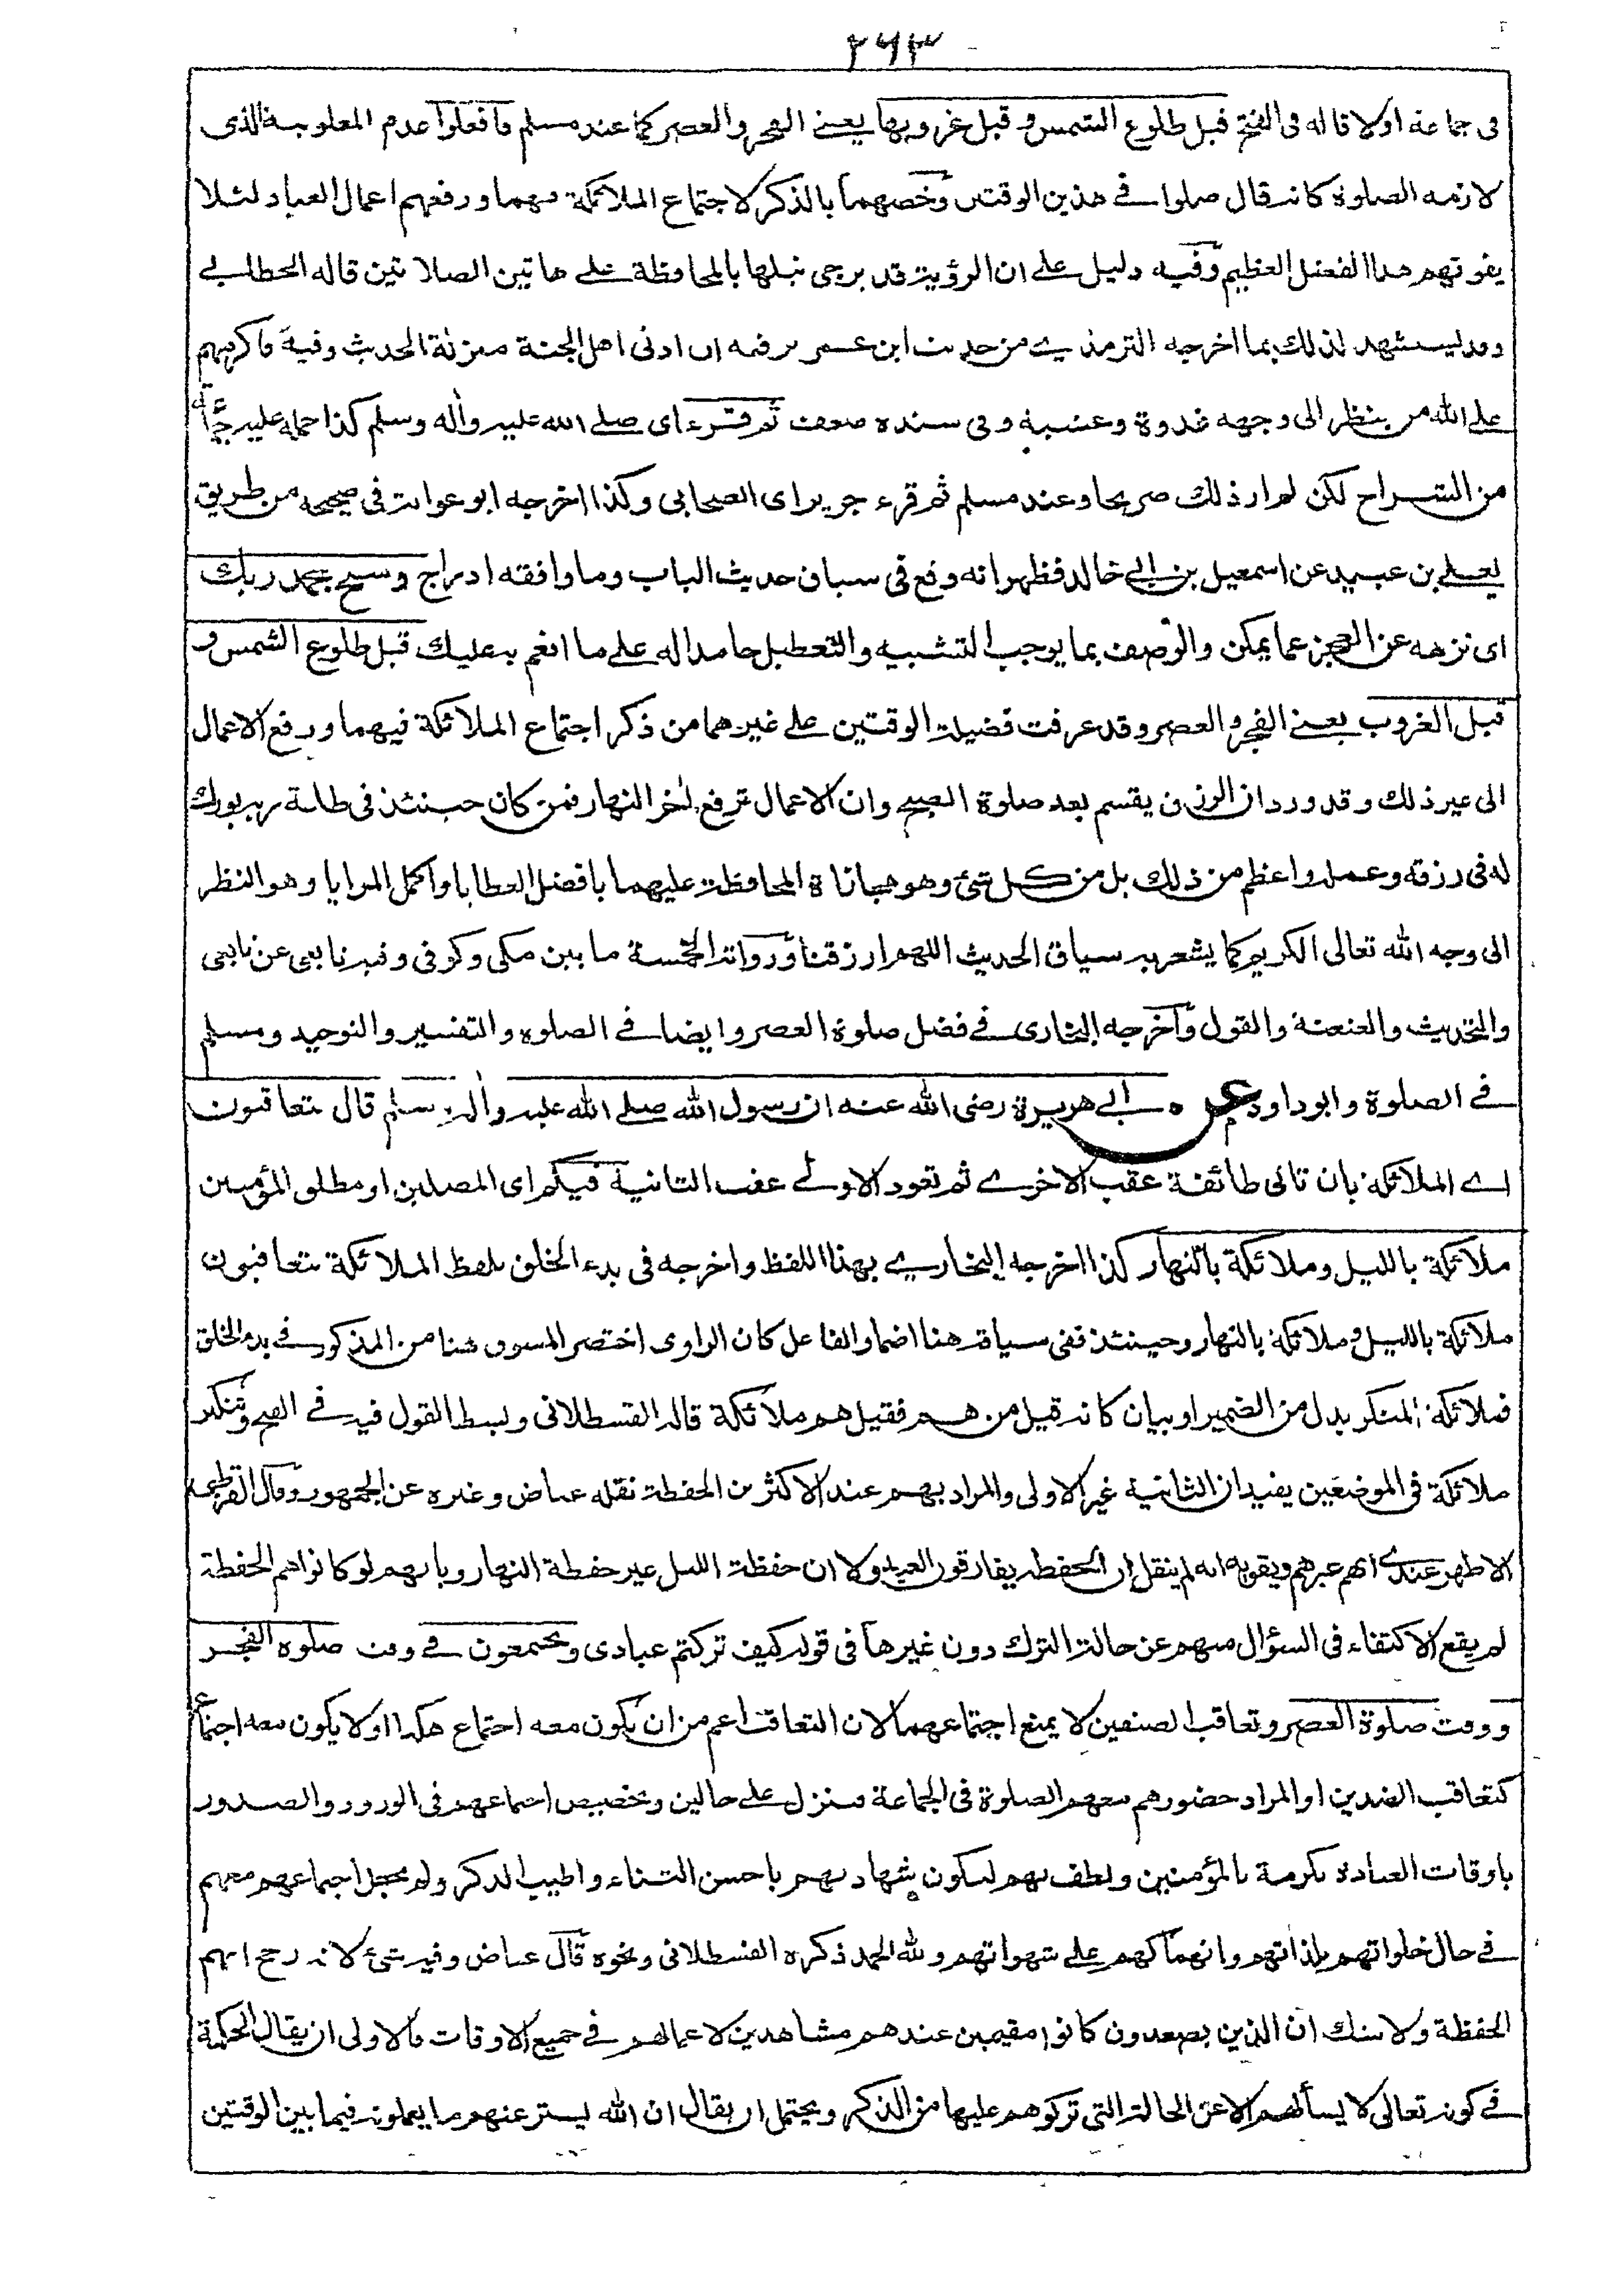 ٢٦٣
فى جماعة اولا قاله فى الفتح قبل طلوع الشمس و قبل غروبها يعنے الفجر والعصر كما عند مسلم فافعلوا عدم المغلوبية الذى
لازمه الصلوة كانه قال صلوا فے هذين الوقتين وخصهما بالذكر لاجتماع الملائكة فيهما ورفعهم اعمال العباد لئلا
يفوتهم هذا الفضل العظيم وفيه دليل علے ان الرؤية قد يرجى نيلها بالمحافظة علے هاتين الصلاتين قاله الخطابے
وقد يستشهد لذلك بما اخرجه الترمذے من حديث ابن عمر رفعه ان ادنى اهل الجنة منزلة الحديث وفيه فاكرمهم
علے الله من ينظر الى وجهه غدوة وعشية وفى سنده ضعف ثم قرء اى صلے الله عليه واٰله وسلم كذا حمله عليه جماعة
من الشراح لكن لم ار ذلك صريحا وعند مسلم ثم قرء جرير اى الصحابى وكذا اخرجه ابو عوانة فى صحيحه من طريق
يعلے بن عبيد عن اسمعيل بن ابے خالد فظهر انه وقع فى سياق حديث الباب وما وافقه ادراج وسبح بحمد ربك
اى نزهه عن العجز عما يمكن والوصف بما يوجب التشبيه والتعطيل حامدا له علے ما انعم به عليك قبل طلوع الشمس و
قبل الغروب يعنے الفجر والعصر وقد عرفت فضيلة الوقتين علے غيرهما من ذكر اجتماع الملائكة فيهما ورفع الاعمال
الى غير ذلك وقد ورد ان الرزق يقسم بعد صلوة الصبح وان الاعمال ترفع اٰخر النهار فمن كان حينئذ فى طاعة ربه بورك
له فى رزقه وعمله واعظم من ذلك بل من كل شئ وهو مجازاة المحافظة عليهما بافضل العطايا واكمل المزايا وهو النظر
الى وجه الله تعالى الكريم كما يشعر به سياق الحديث اللهم ارزقنا ورواته الخمسة ما بين مكى وكوفى وفيه تابعى عن تابعى
والتحديث والعنعنة والقول واخرجه البخارى فے فضل صلوة العصر وايضا فے الصلوة والتفسير والتوحيد ومسلم
فے الصلوة وابوداود عن ابے هريرة رضى الله عنه ان رسول الله صلے الله عليه واٰله وسلم قال يتعاقبون
اے الملائكة بان تاتى طائفة عقب الاخرے ثم تعود الاولے عقب الثانية فيكم اى المصلين او مطلق المؤمنين
ملائكة بالليل وملائكة بالنهار كذا اخرجه البخارے بهذا اللفظ واخرجه فى بدء الخلق بلفظ الملائكة يتعاقبون
ملائكة بالليل وملائكة بالنهار وحينئذ ففى سياقه هنا اضمار الفاعل كان الراوى اختصر المسوق هنا من المذكور فے بدء الخلق
فملائكة المنكر بدل من الضمير او بيان كانه قيل من هم فقيل هم ملائكة قاله القسطلانى وبسط القول فيه فے الفتح وتنكير
ملائكة فى الموضعين يفيد ان الثانية غير الاولى والمراد بهم عند الاكثر من الحفظة نقله عياض وغيره عن الجمهور وقال القرطبى
الاظهر عندے انهم غيرهم ويقويه انه لم ينقل ان الحفظة يفارقون العبد ولا ان حفظة الليل غير حفظة النهار وبانهم لو كانوا هم الحفظة
لم يقع الاكتفاء فى السؤال منهم عن حالة الترك دون غيرها فى قوله كيف تركتم عبادى ويجتمعون فے وقت صلوة الفجر
ووقت صلوة العصر وتعاقب الصنفين لا يمنع اجتماعهما لان التعاقب اعم من ان يكون معه اجتماع هكذا او لا يكون معه اجتماع
كتعاقب الضدين او المراد حضورهم معهم الصلوة فى الجماعة فينزل علے حالين وتخصيص اجتماعهم فى الورود والصدور
باوقات العبادة تكرمة بالمؤمنين ولطف بهم لتكون شهادتهم باحسن الثناء واطيب الذكر ولم يجعل اجتماعهم معهم
فے حال خلواتهم بلذاتهم وانهماكهم علے شهواتهم ولله الحمد ذكره القسطلانى ونحوه قال عياض وفيه شئ لانه رجح انهم
الحفظة ولا شك ان الذين يصعدون كانوا مقيمين عندهم مشاهدين لاعمالهم فے جميع الاوقات فالاولى ان يقال الحكمة
فے كونه تعالى لا يسألهم الا عن الحالة التى تركوهم عليها من الذكر ويحتمل ان يقال ان الله يستر عنهم ما يعملونه فيما بين الوقتين